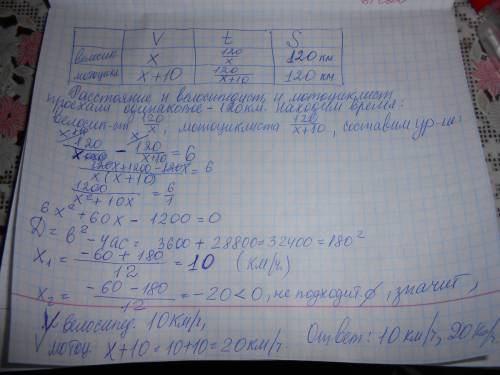 V t S
велосип. x 120/x 120 км
мотоцикл x+10 120/x+10 120 км
Расстояние и велосипедист и мотоциклист
проехали одинаковое - 120 км. Находим время:
велосип-ст 120/x, мотоциклиста 120/x+10, составим ур-ие:
120/x - 120/x+10 = 6
120x+1200-120x/x(x+10) = 6
1200/x²+10x = 6/1
6x²+60x-1200=0
D=b²-4ac= 3600+28800=32400=180²
x₁= -60+180/12 =10 (км/ч.)
x₂= -60-180/12 =-20<0, не подходит. ∅, значит,
V велосипед. 10 км/ч,
V мотоц. x+10=10+10=20 км/ч. Ответ: 10 км/ч, 20 км/ч.